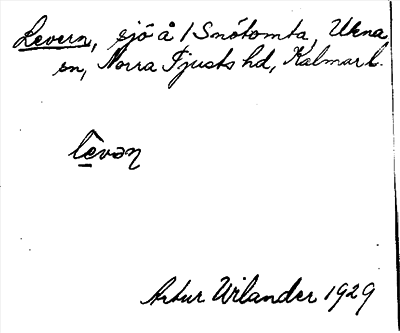 Levern, sjö å 1 Snötomta, Ukna
sn, Norra Tjusts hd, Kalmar l.
lēvəɳ
Artur Wilander 1929